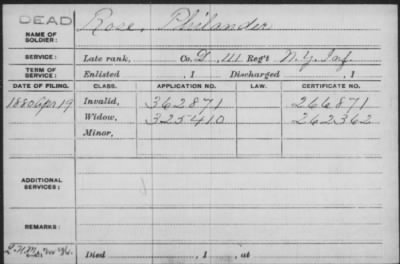 DEAD
NAME OF SOLDIER: Rose, Philander
SERVICE: Late rank, Co. D, 111 Reg't N.Y. Inf.
TERM OF SERVICE: Enlisted , 1 Discharged , 1
DATE OF FILING. CLASS. APPLICATION NO. LAW. CERTIFICATE NO.
1880 Apr 19 Invalid, 362871 266871
Widow, 325410 262362
Minor,
ADDITIONAL SERVICES:
REMARKS:
Died , 1 , at